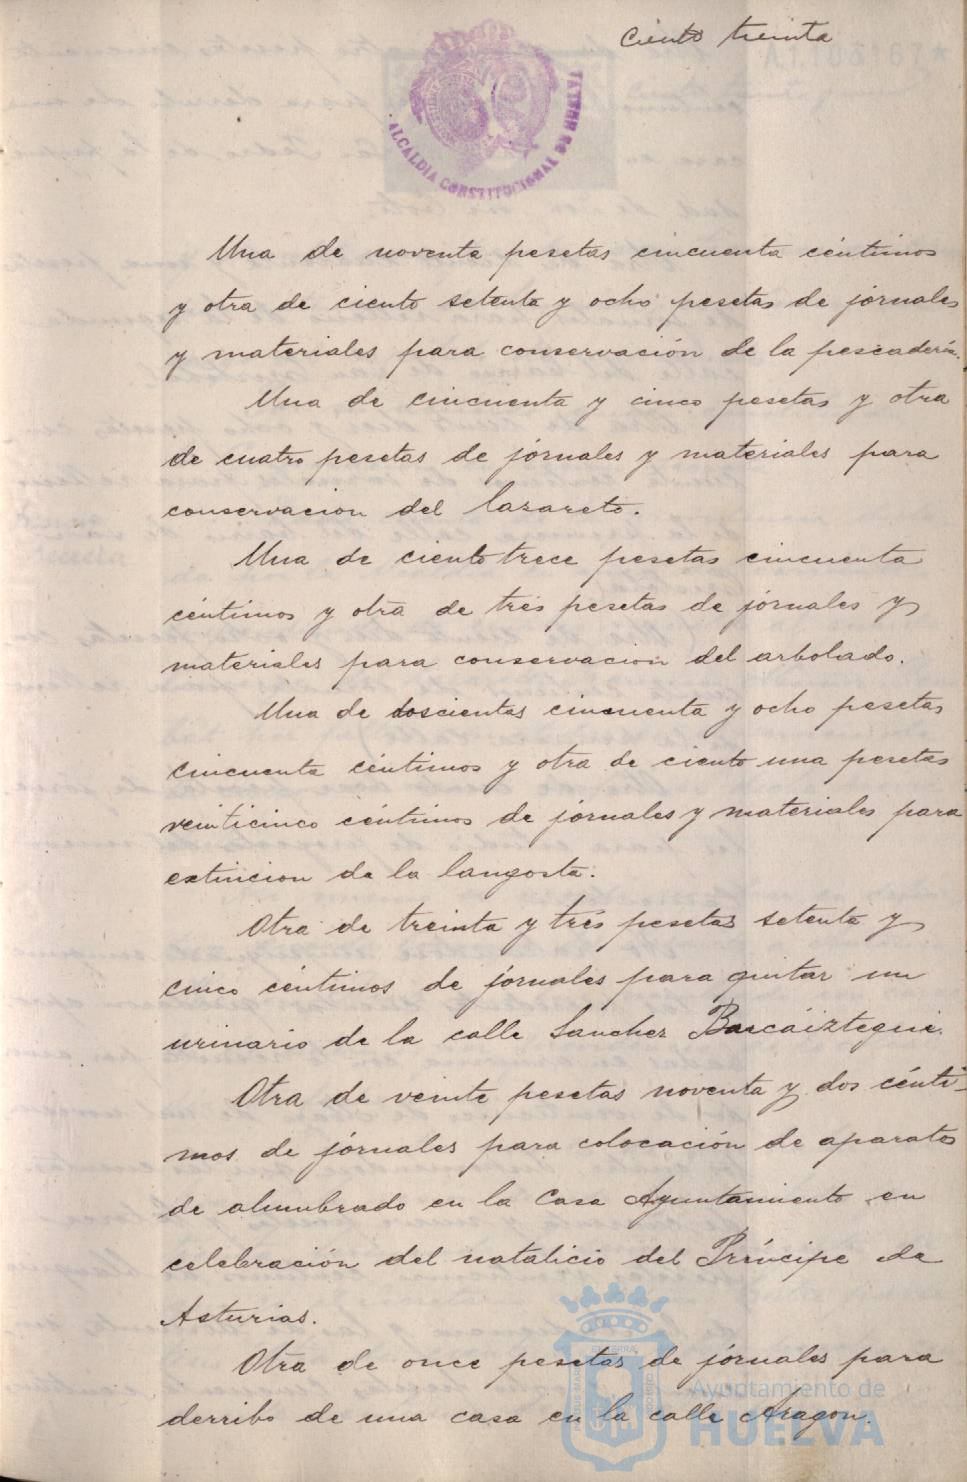 Ciento treinta
A.1.103.167*
ALCALDIA CONSTITUCIONAL DE HUELVA
Una de noventa pesetas cincuenta céntimos
y otra de ciento setenta y ocho pesetas de jornales
y materiales para conservación de la pescadería.
Una de cincuenta y cinco pesetas y otra
de cuatro pesetas de jornales y materiales para
conservacion del lazareto.
Una de ciento trece pesetas cincuenta
céntimos y otra de tres pesetas de jornales y
materiales para conservacion del arbolado.
Una de doscientas cincuenta y ocho pesetas
cincuenta céntimos y otra de ciento una pesetas
veinticinco céntimos de jornales y materiales para
extincion de la langosta.
Otra de treinta y tres pesetas setenta y
cinco céntimos de jornales para quitar un
urinario de la calle Sanchez Barcáiztegui.
Otra de veinte pesetas noventa y dos cénti-
mos de jornales para colocación de aparatos
de alumbrado en la Casa Ayuntamiento en
celebración del natalicio del Príncipe de
Asturias.
Otra de once pesetas de jornales para
derribo de una casa en la calle Aragon.
Ayuntamiento de
HUELVA